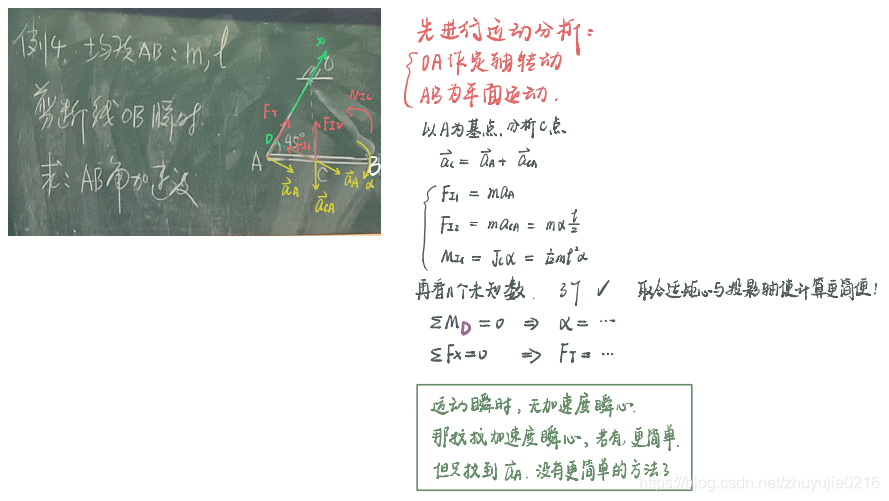 例4. 均质AB：m, l
剪断线OB瞬时.
求：AB角加速度
x
O
F_T
M_IC
F_I2
D
45°
F_I1
A
B
C
a⃗_A
a⃗_A
α
a⃗_CA
先进行运动分析：
OA作定轴转动
AB为平面运动.
以A为基点, 分析C点
a⃗_C = a⃗_A + a⃗_CA
F_I1 = ma_A
F_I2 = ma_CA = mα l/2
M_IC = J_Cα = 1/12 ml²α
再看几个未知数. 3个 ✓ 取合适矩心与投影轴使计算更简便！
ΣM_D = 0 ⇒ α = …
ΣFx=0 ⇒ F_T = …
运动瞬时, 无加速度瞬心.
那找找加速度瞬心, 若有, 更简单.
但只找到 a⃗_A. 没有更简单的方法了
https://blog.csdn.net/zhuyujie0216